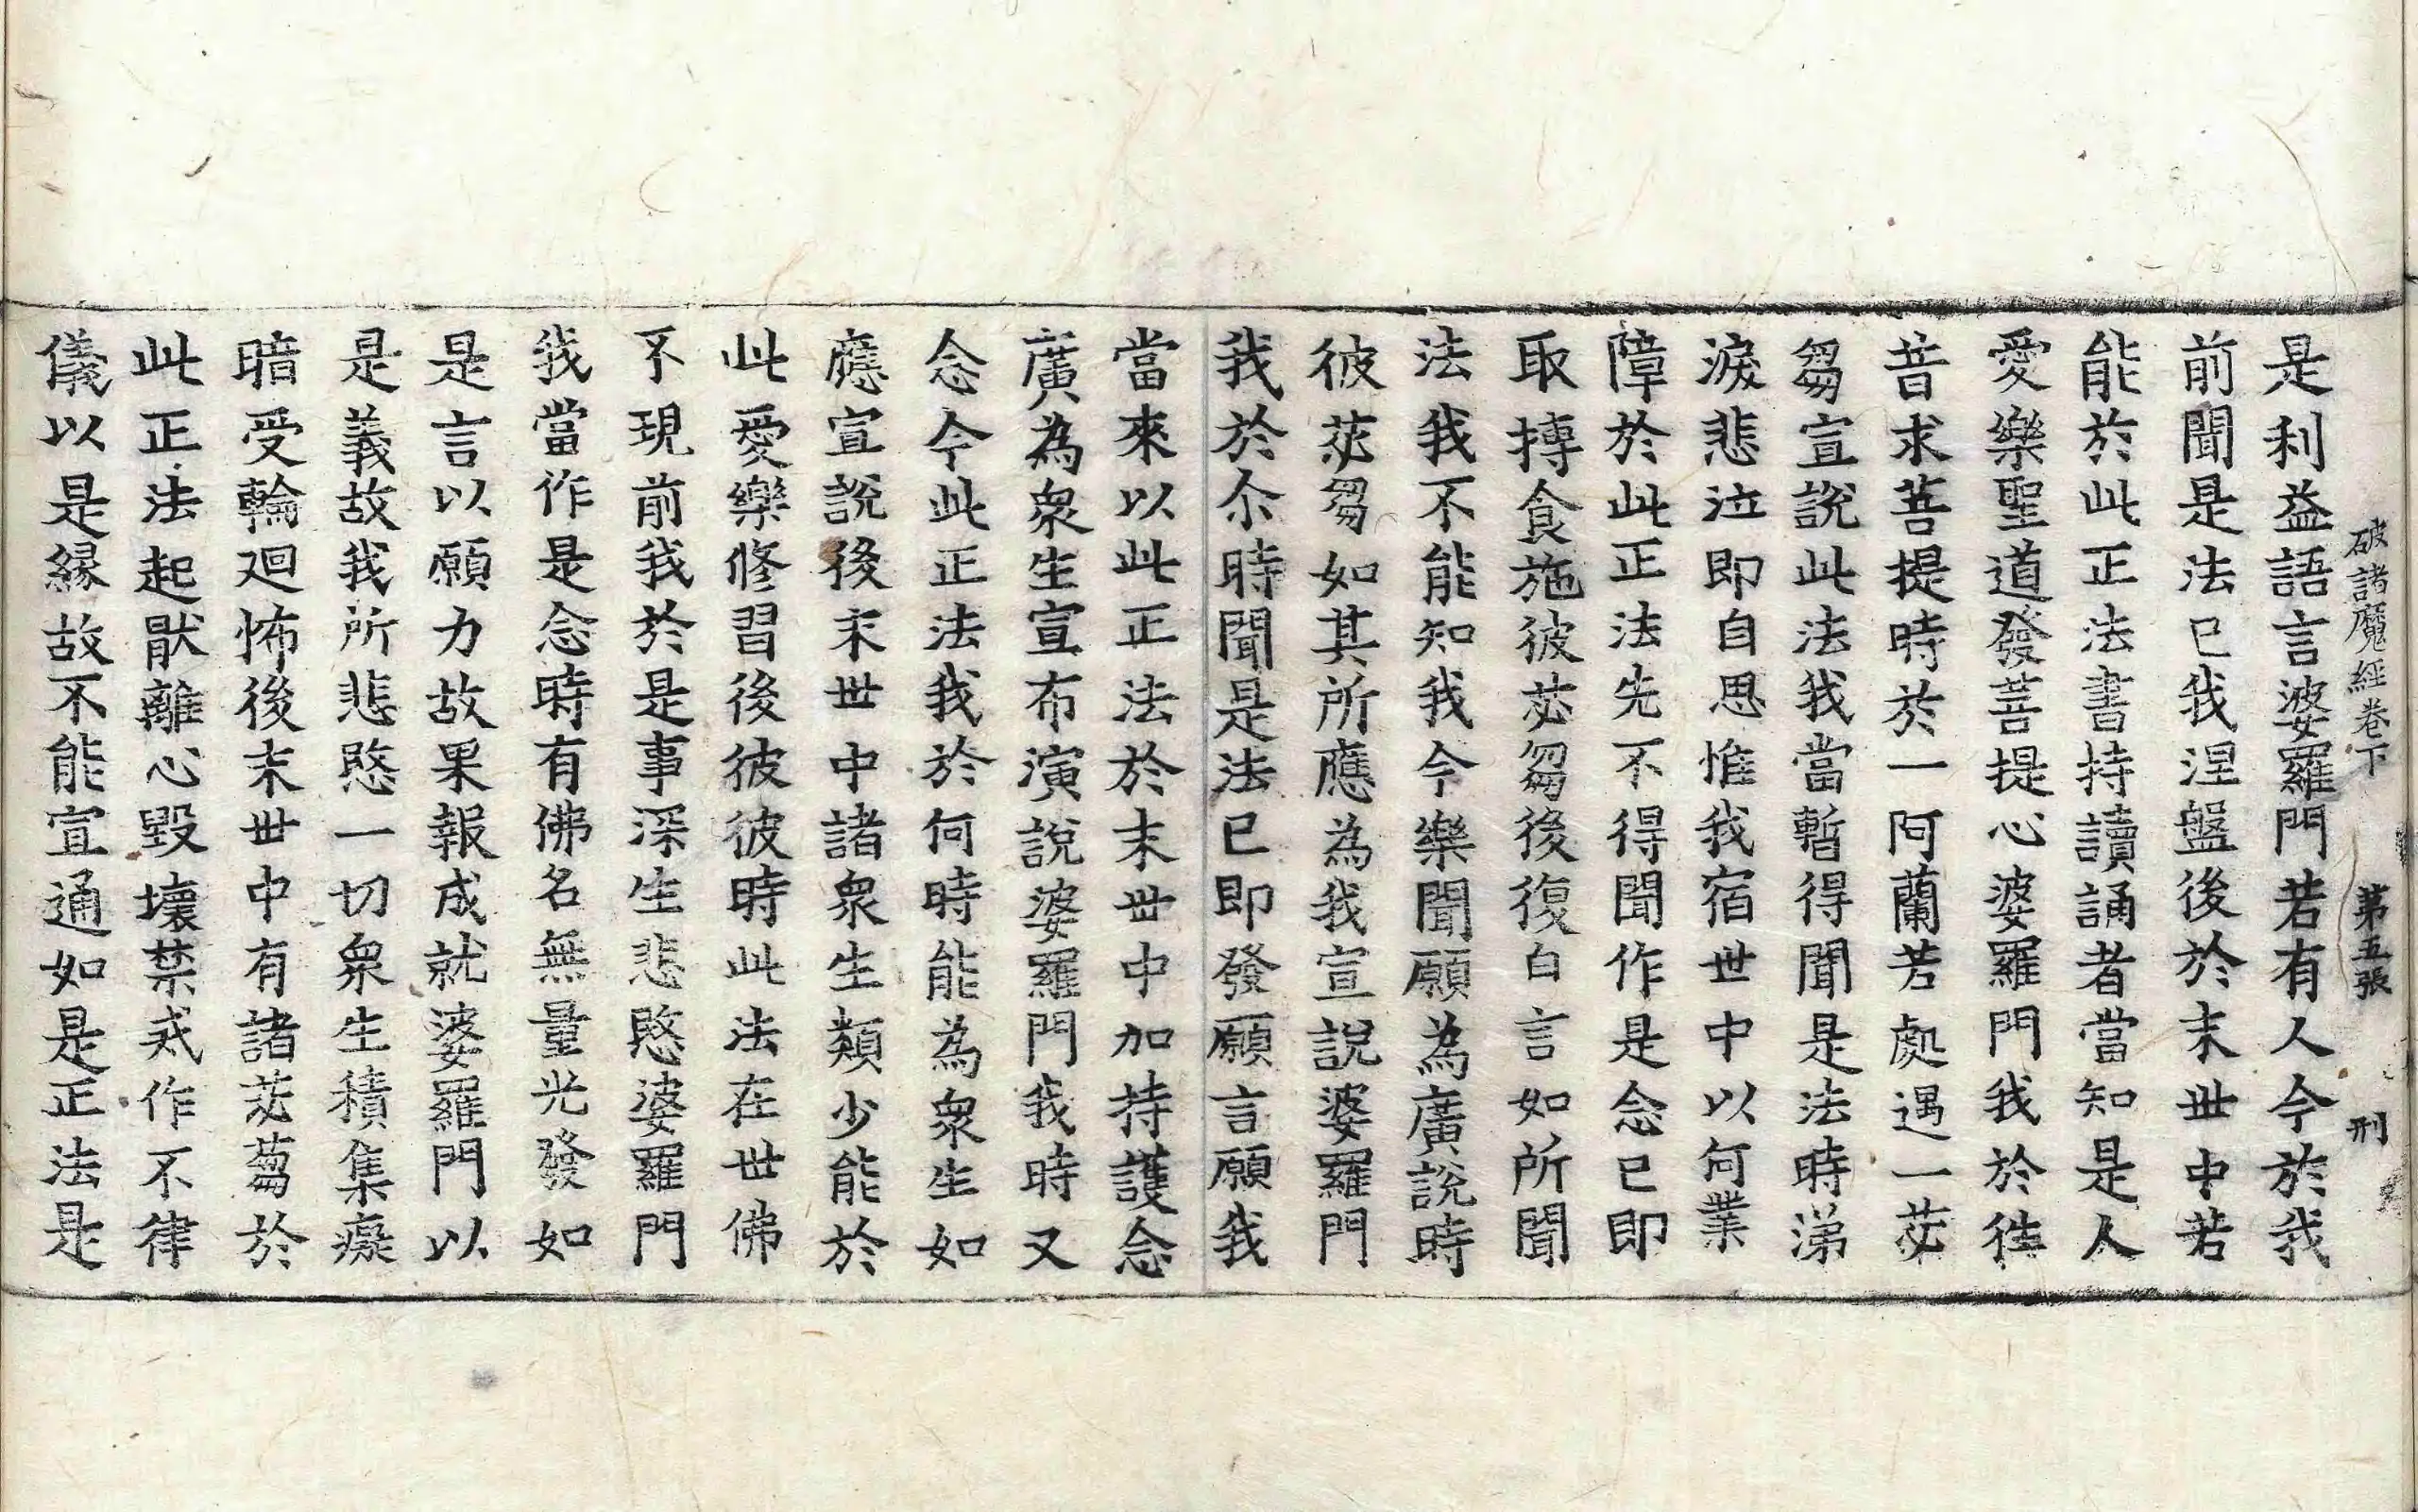 破諸魔經卷下 第五張 刑
是利益語言婆羅門若有人今於我
前聞是法已我涅盤後於末世中若
能於此正法書持讀誦者當知是人
愛樂聖道發菩提心婆羅門我於徃
昔求菩提時於一阿蘭若處遇一苾
芻宣說此法我當暫得聞是法時涕
淚悲泣即自思惟我宿世中以何業
障於此正法先不得聞作是念已即
取摶食施彼苾芻後復白言如所聞
法我不能知我今樂聞願為廣說時
彼苾芻如其所應為我宣說婆羅門
我於尒時聞是法已即發願言願我
當來以此正法於末世中加持護念
廣為衆生宣布演說婆羅門我時又
念今此正法我於何時能為衆生如
應宣說後末世中諸衆生類少能於
此愛樂修習後彼彼時此法在世佛
不現前我於是事深生悲愍婆羅門
我當作是念時有佛名無量光發如
是言以願力故果報成就婆羅門以
是義故我所悲愍一切衆生積集癡
暗受輪迴怖後末世中有諸苾芻於
此正法起猒離心毀壞禁戒作不律
儀以是緣故不能宣通如是正法是